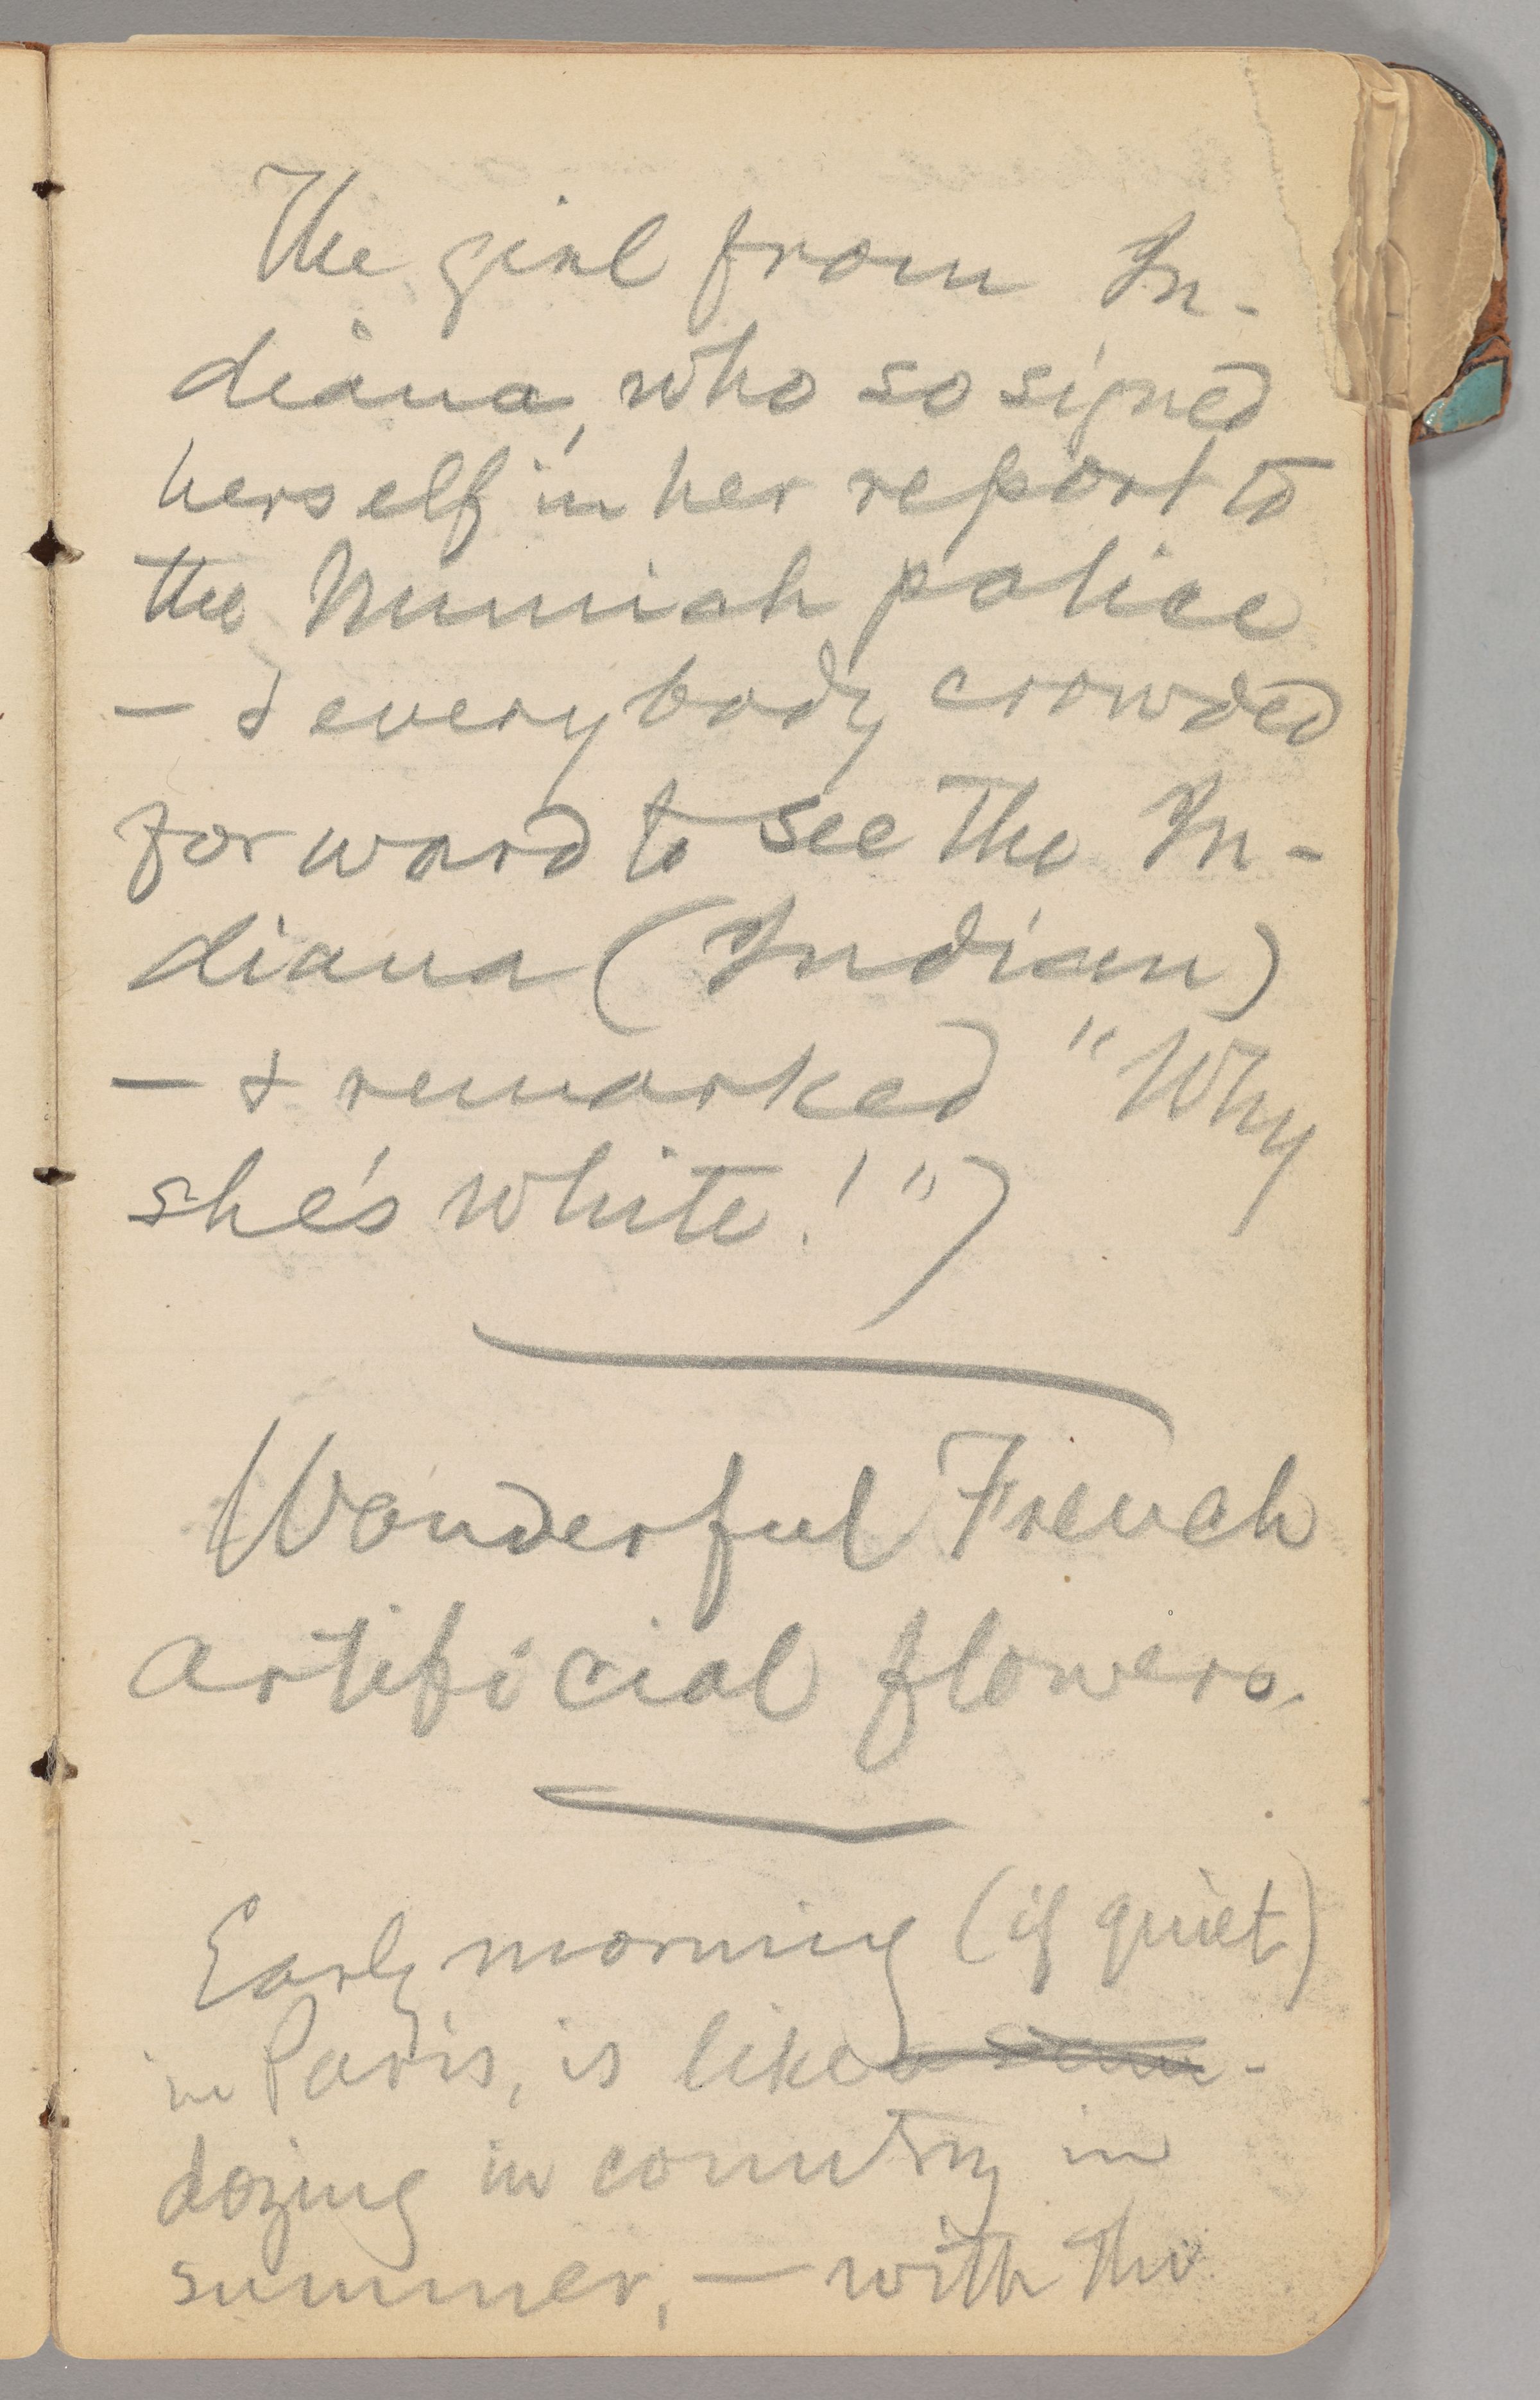 The girl from In-
diana, who so signed
herself in her report to
the Munich police
— & everybody crowded
forward to see the In-
diana (Indian)
— & remarked "Why
she's white!")
Wonderful French
artificial flowers.
Early morning (if quiet)
in Paris, is like -
dozing in country in
summer, — with the